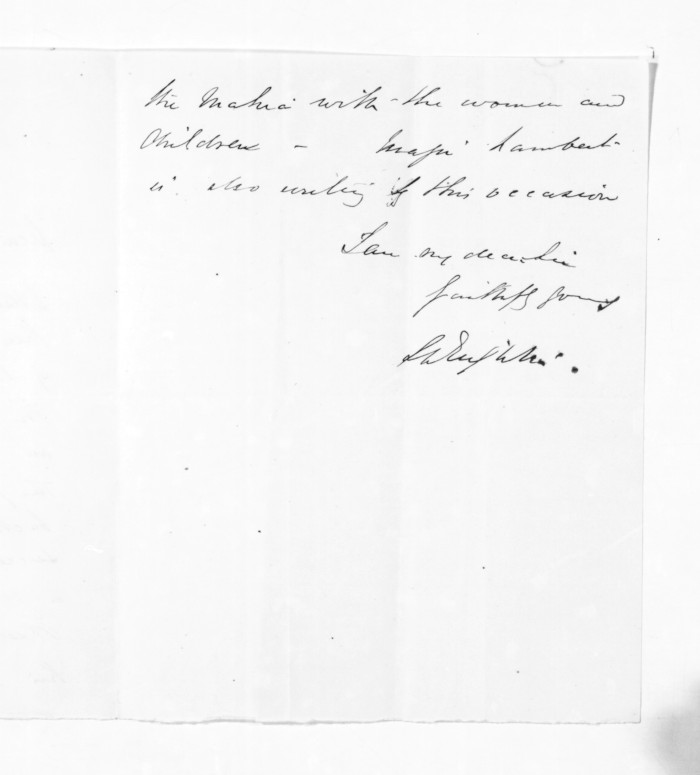 the Mahia with the women and
Children - Major Lambert
is also writing by this occasion
I am my dear Sir
faithfy yours